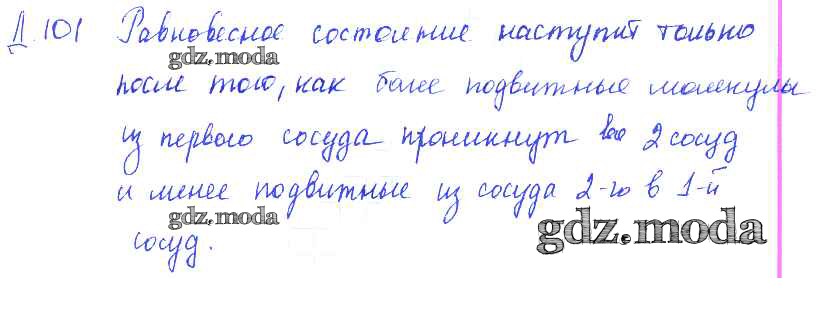 Д.101 Равновесное состояние наступит только
gdz.moda
после того, как более подвижные молекулы
из первого сосуда проникнут во 2 сосуд
и менее подвижные из сосуда 2-го в 1-й
gdz.moda
gdz.moda
сосуд.